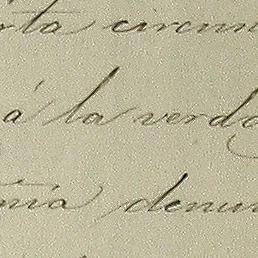 rta circun
á la verda
nia denun